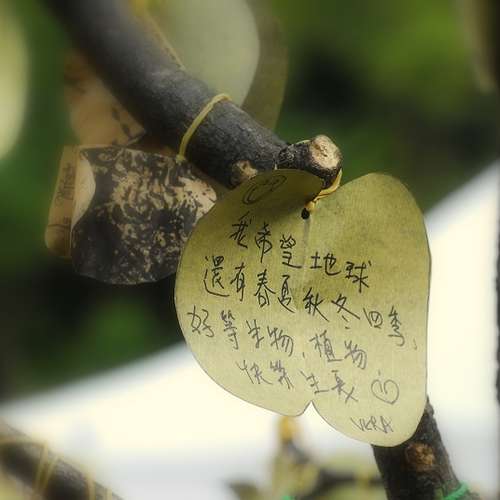 我希望地球
還有春夏秋冬四季,
好等生物、植物、
快樂生長
VERA